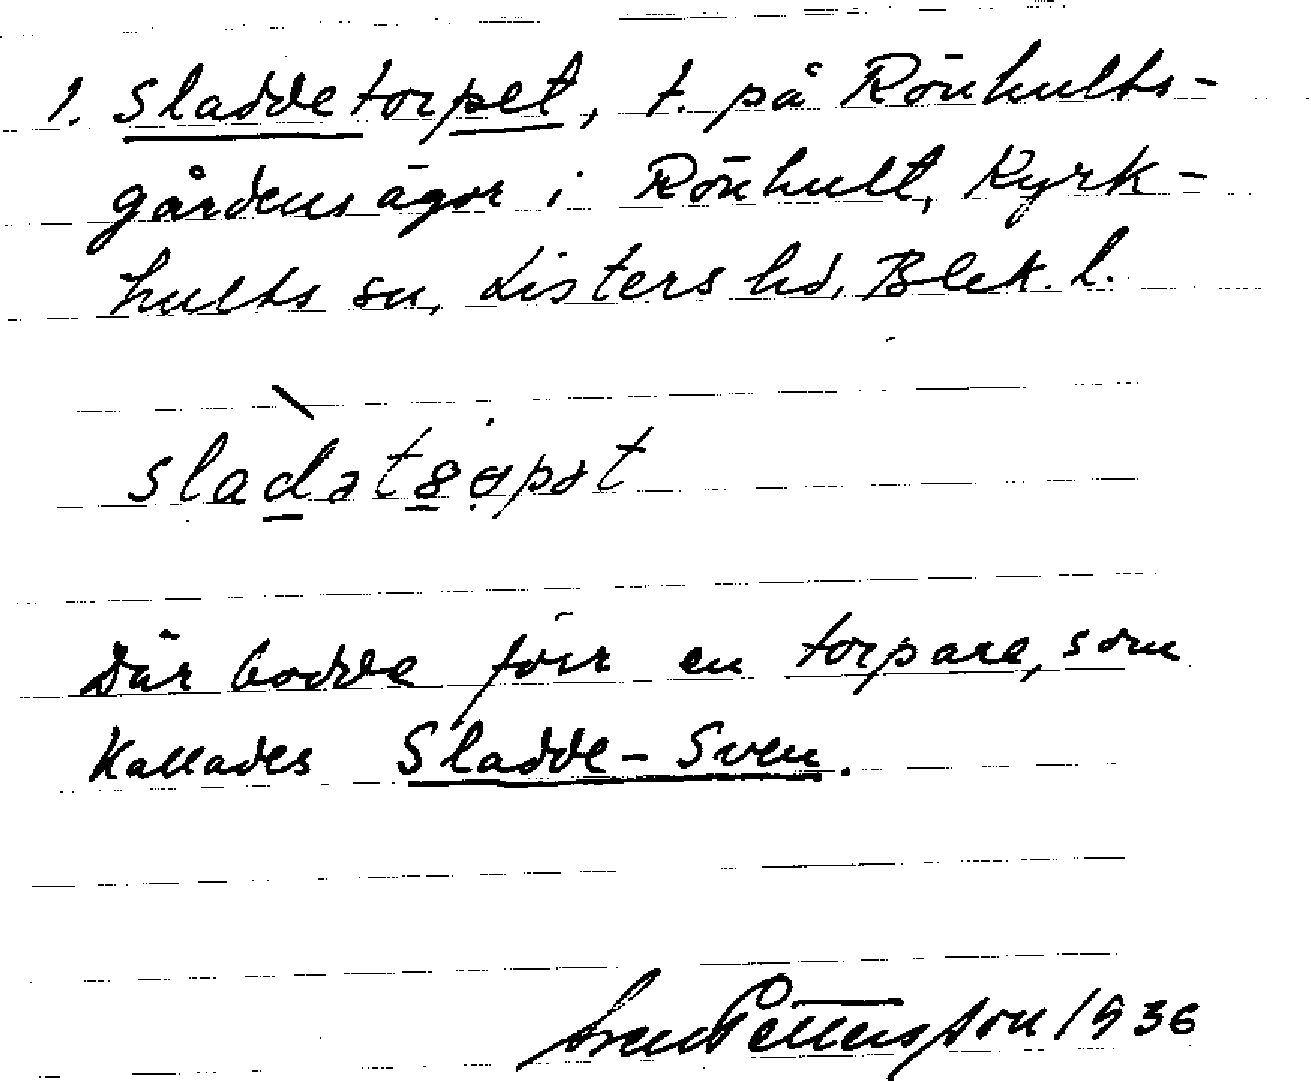 1. Sladdetorpet, t. på Rönhults-
gårdens ägor i Rönhult, Kyrk-
hults sn, Listers hd, Blek. l.
Där bodde förr en torpare, som
kallades Sladde-Sven.
Sven Pettersson 1936